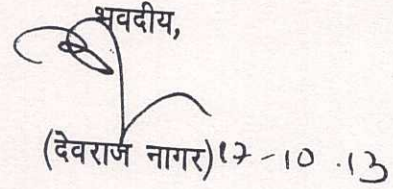 भवदीय,
(देवराज नागर) 17-10.13